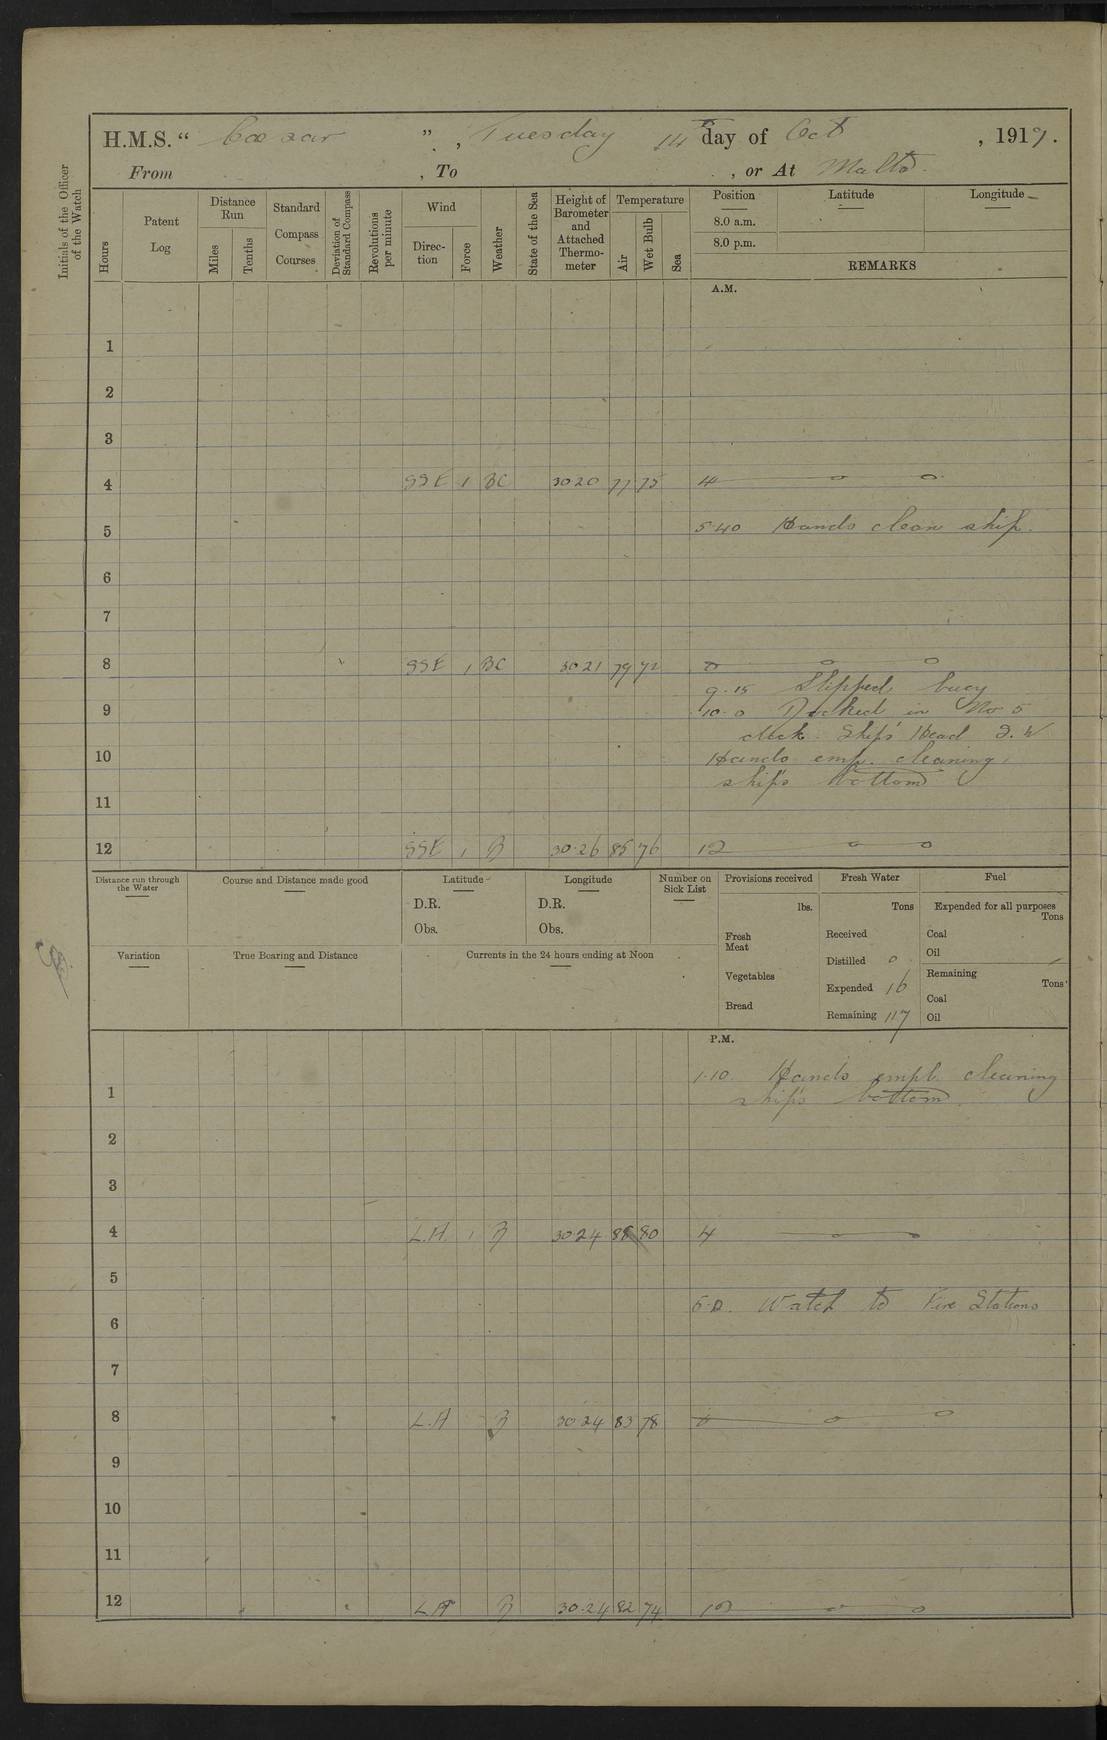 H.M.S. “ Cæsar ” , Tuesday 14th day of Oct , 1919.
From , To , or At Malta.
Initials of the Officer
of the Watch
Hours
Patent
Log
Distance
Run
Miles
Tenths
Standard
Compass
Courses
Deviation of
Standard Compass
Revolutions
per minute
Wind
Direc-
tion
Force
Weather
State of the Sea
Height of
Barometer
and
Attached
Thermo-
meter
Temperature
Air
Wet Bulb
Sea
Position Latitude Longitude
8.0 a.m.
8.0 p.m.
REMARKS
A.M.
1
2
3
4 SSE 1 BC 3020 77 75 4
5 5.40 Hands clean ship.
6
7
8 SSE 1 BC 3021 79 72 8
9.15 Slipped buoy
9 10.0 Docked in No 5
dock. Ship's Head S.W
10 Hands emp. cleaning
ship's bottom
11
12 SSE 1 B 30.26 85 76 12
Distance run through
the Water
Course and Distance made good
Latitude
D.R.
Obs.
Longitude
D.R.
Obs.
Number on
Sick List
Provisions received
lbs.
Fresh
Meat
Vegetables
Bread
Fresh Water
Tons
Received
Distilled 0
Expended 16
Remaining 117
Fuel
Expended for all purposes
Tons
Coal
Oil
Remaining
Tons
Coal
Oil
Variation
True Bearing and Distance
Currents in the 24 hours ending at Noon
P.M.
1.10. Hands empl. cleaning
1 ship's bottom
2
3
4 L.A. 1 B 30.24 80 4
5
Watch to Fire Stations
6
7
8 L.A B 30.24 83 78 8
9
10
11
12 LA B 30.24 82 74 12